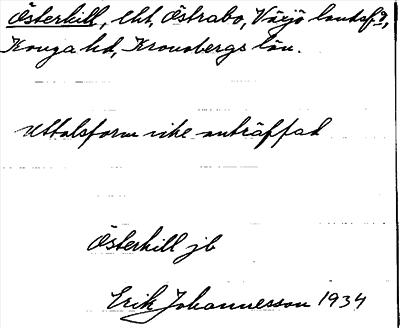 Österhill, lht, Östrabo, Växjö landsf.g,
Konga hd, Kronobergs län.
Uttalsform icke anträffad
Österhill jb
Erik Johannesson 1934